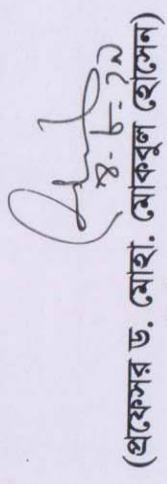 ৪-৮-১৯
(প্রফেসর ড. মোহা. মোকবুল হোসেন)